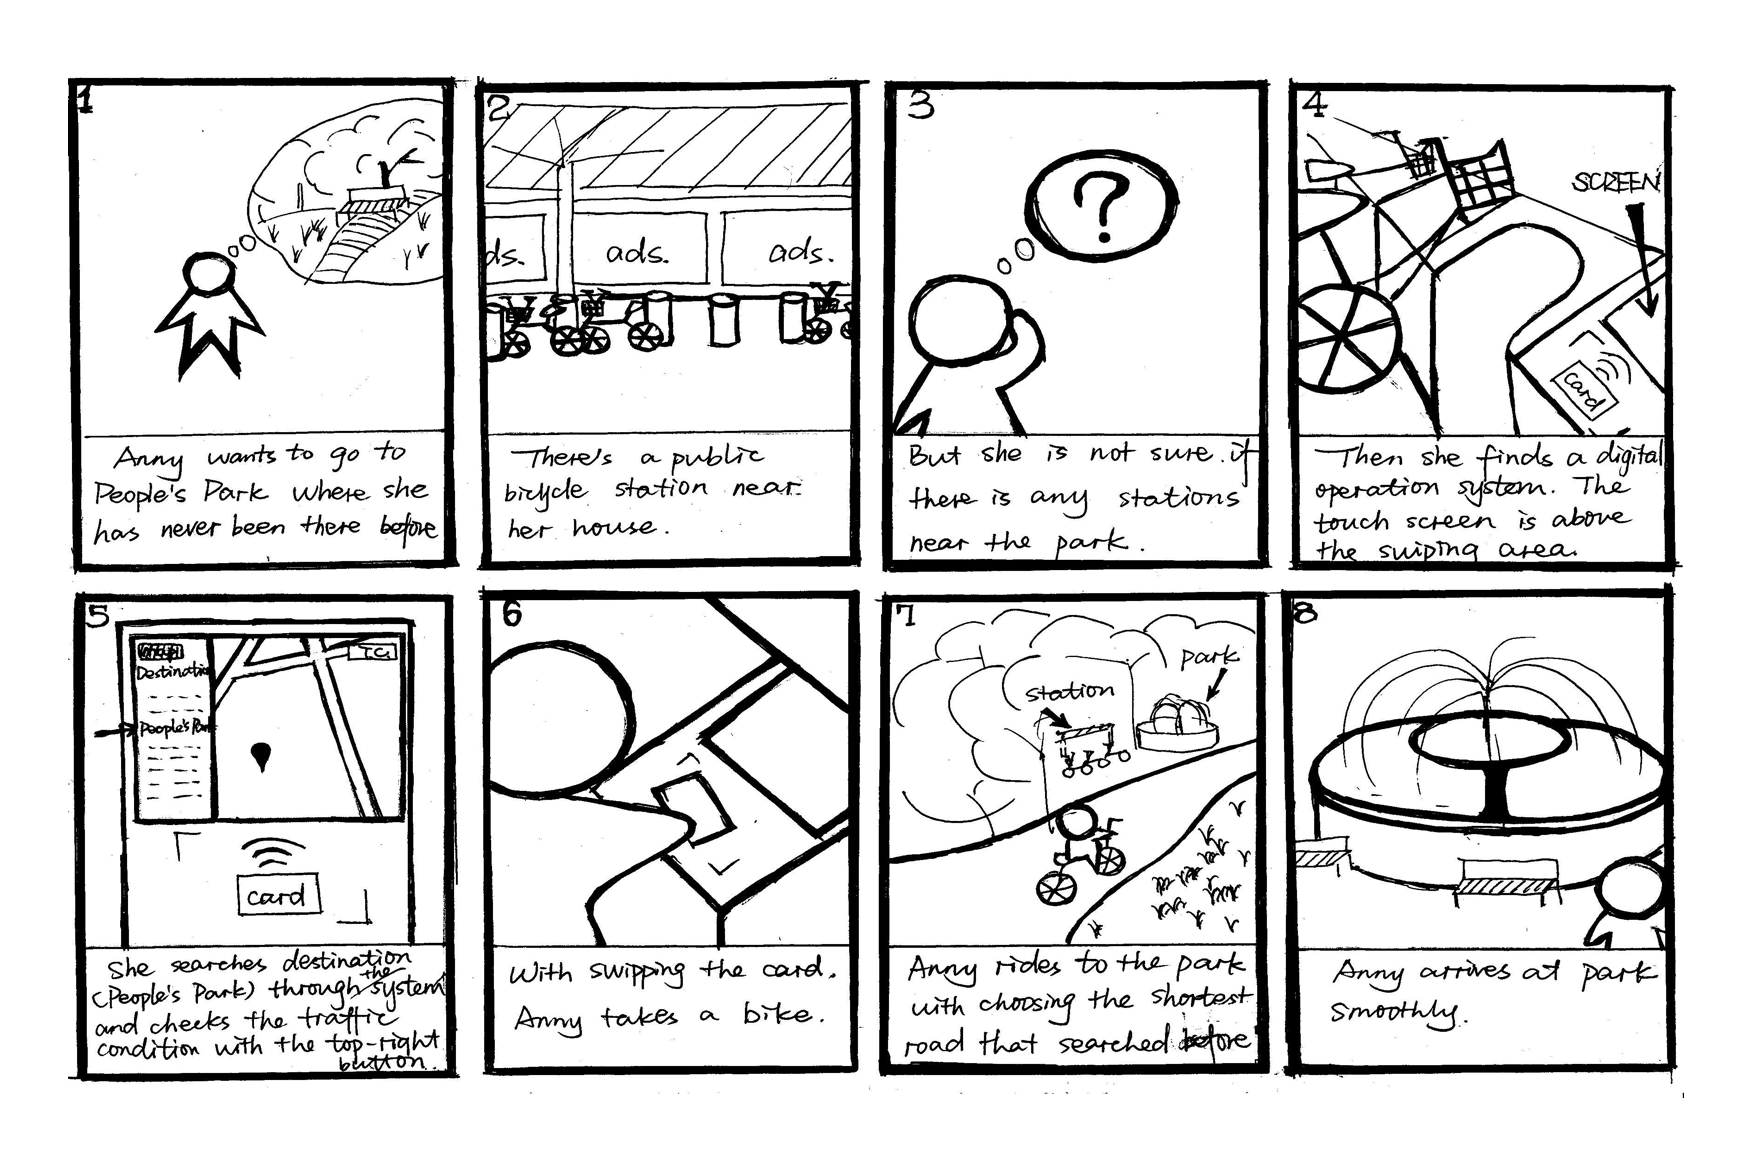 1
Anny wants to go to
People's Park where she
has never been there before
2
ds.
ads.
ads.
There's a public
bicycle station near
her house.
3
?
But she is not sure if
there is any stations
near the park.
4
SCREEN
card
Then she finds a digital
operation system. The
touch screen is above
the swiping area.
5
Destination
People's Par
card
She searches destination
(People's Park) through the system
and checks the traffic
condition with the top-right
button.
6
With swipping the card.
Anny takes a bike.
7
park
station
Anny rides to the park
with choosing the shortest
road that searched before
8
Anny arrives at park
smoothly.